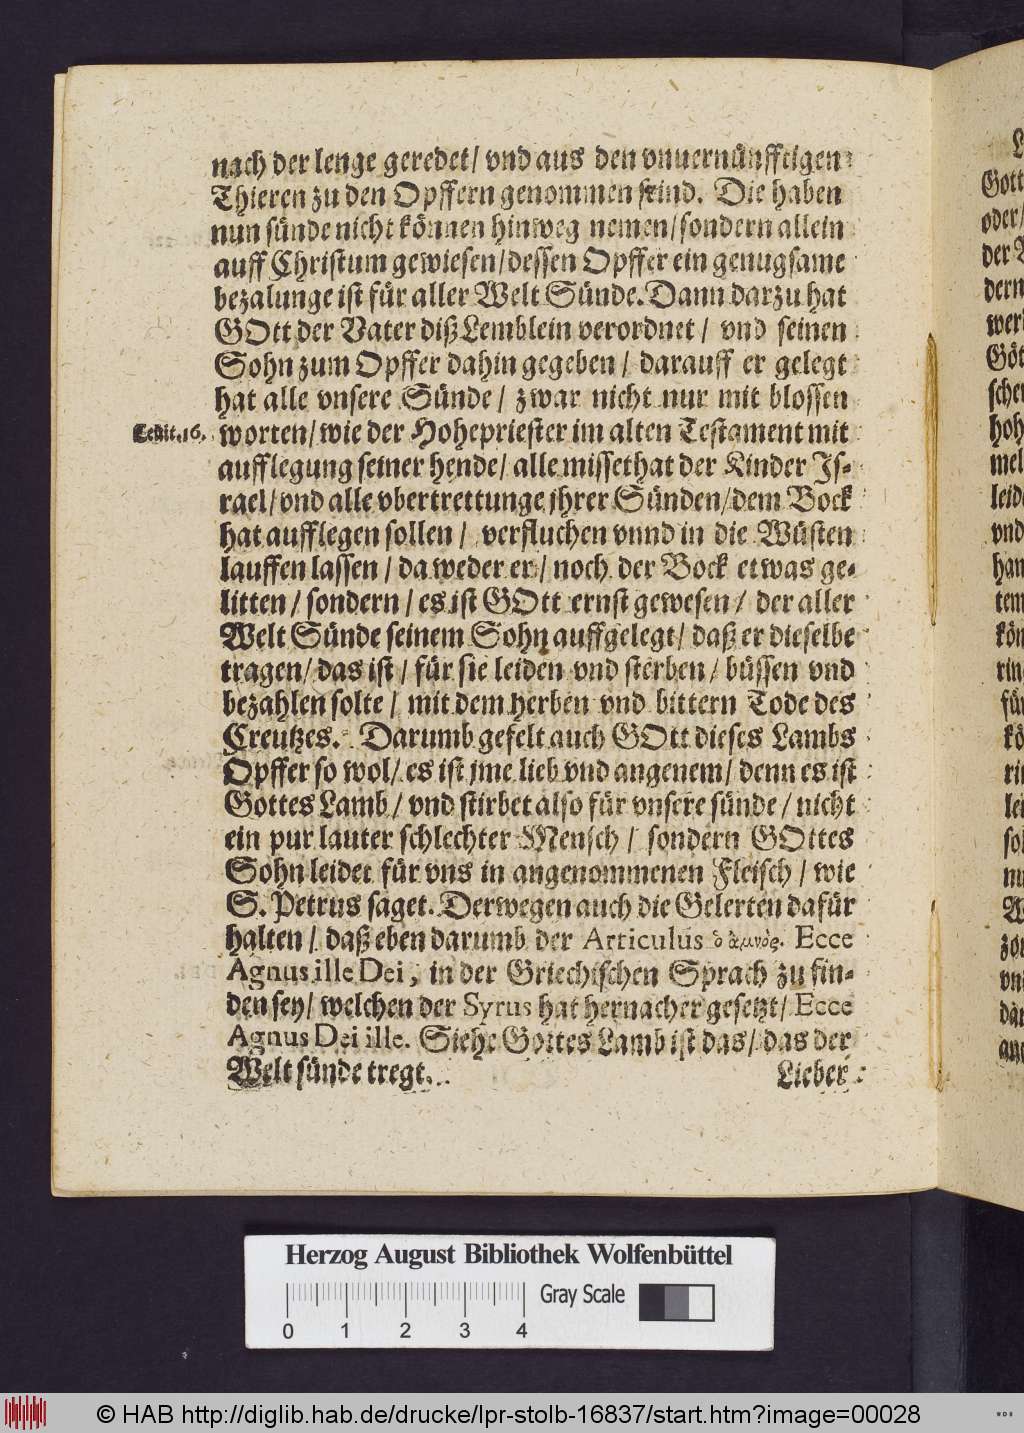 nach der lenge geredet/ vnd aus den vnuernünfftigen
Thieren zu den Opffern genommen seind. Die haben
nun sünde nicht können hinweg nemen/sondern allein
auff Christum gewiesen/dessen Opffer ein genugsame
bezalunge ist für aller Welt Sünde. Dann darzu hat
GOtt der Vater diß Lemblein verordnet/ vnd seinen
Sohn zum Opffer dahin gegeben/ darauff er gelegt
hat alle vnsere Sünde/ zwar nicht nur mit blossen
worten/wie der Hohepriester im alten Testament mit
aufflegung seiner hende/ alle missethat der Kinder Js-
rael/vnd alle vbertrettunge jhrer Sünden/dem Bock
hat aufflegen sollen/ verfluchen vnnd in die Wüsten
lauffen lassen/ da weder er/ noch der Bock etwas ge-
litten/ sondern/ es ist GOtt ernst gewesen/ der aller
Welt Sünde seinem Sohn auffgelegt/ daß er dieselbe
tragen/ das ist/ für sie leiden vnd sterben/ büssen vnd
bezahlen solte/ mit dem herben vnd bittern Tode des
Creutzes. Darumb gefelt auch GOtt dieses Lambs
Opffer so wol/ es ist jme lieb vnd angenem/ denn es ist
Gottes Lamb/ vnd stirbet also für vnsere sünde/ nicht
ein pur lauter schlechter Mensch/ sondern GOttes
Sohn leidet für vns in angenommenen Fleisch/ wie
S. Petrus saget. Derwegen auch die Gelerten dafür
halten/ daß eben darumb der Articulus ὁ ἀμνὸς. Ecce
Agnus ille Dei, in der Griechischen Sprach zu fin-
den sey/ welchen der Syrus hat hernacher gesetzt/ Ecce
Agnus Dei ille. Siehe Gottes Lamb ist das/ das der
Welt sünde tregt.
Lieber
16.
Gott
oder/
der
dern
Göt
hoh
mel
vnd
tem
für
Herzog August Bibliothek Wolfenbüttel
0 1 2 3 4
Gray Scale
© HAB http://diglib.hab.de/drucke/lpr-stolb-16837/start.htm?image=00028